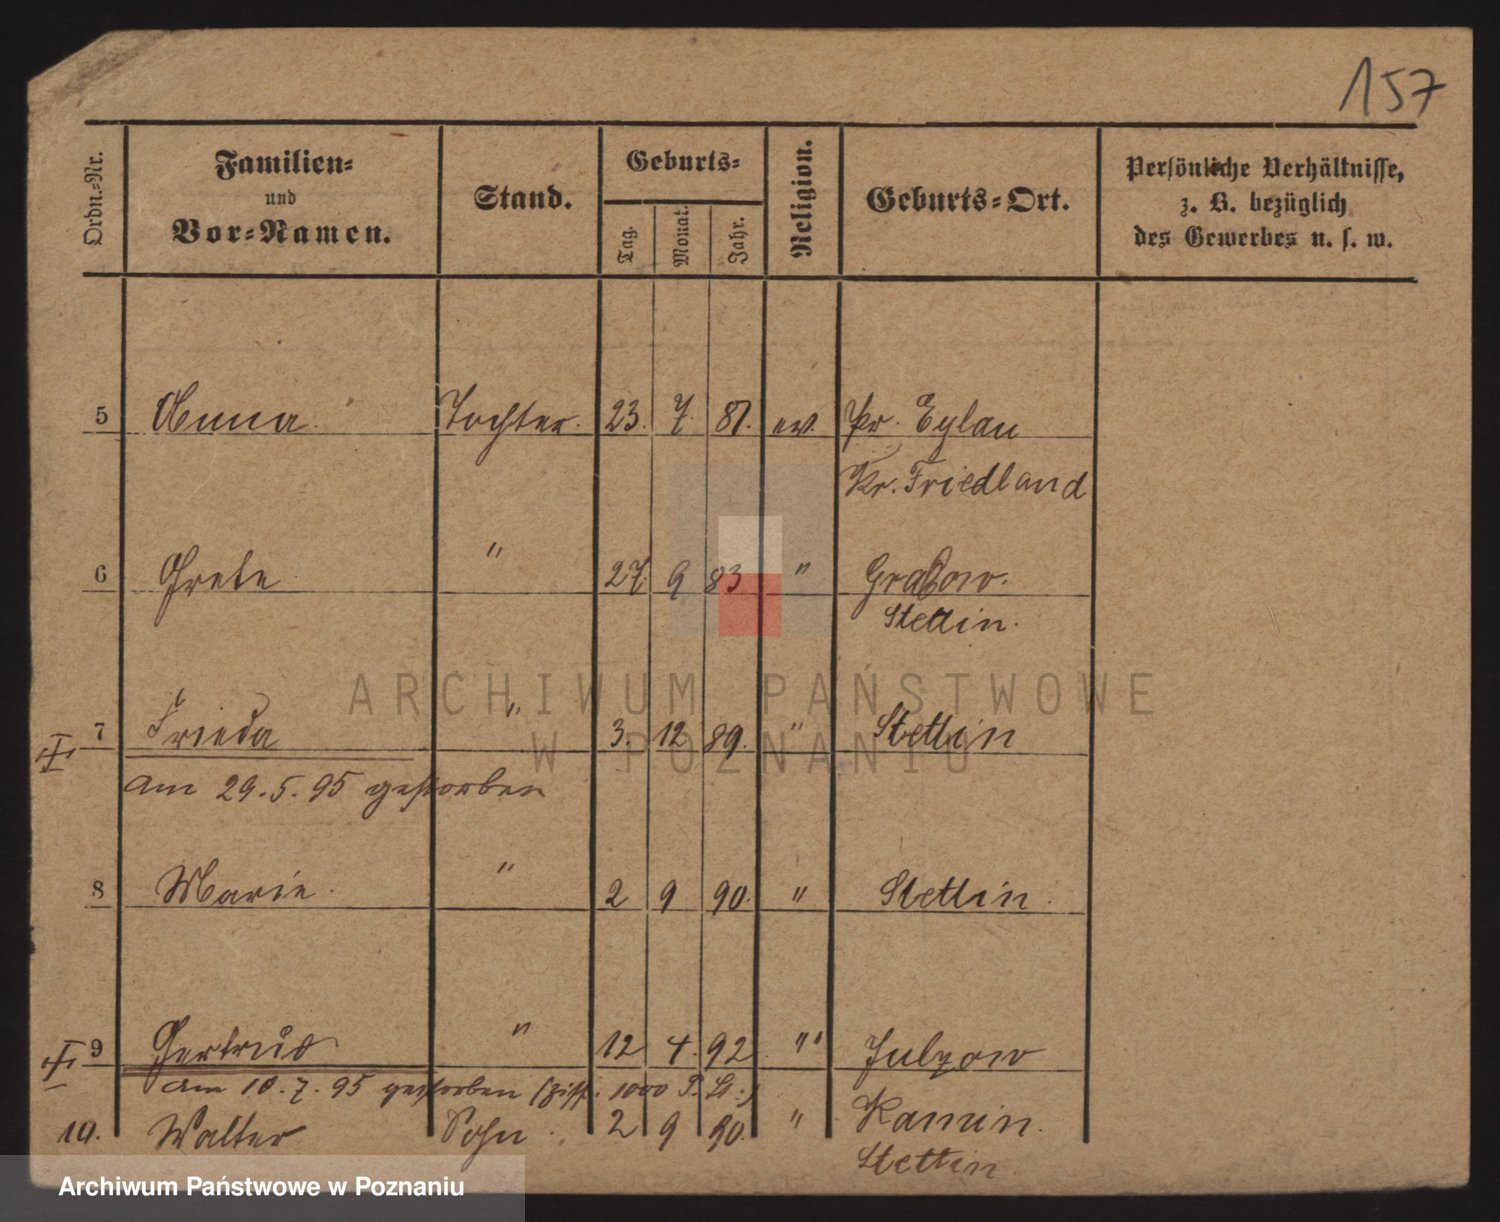 157
Ordn.-Nr.
Familien-
und
Vor-Namen.
Stand.
Geburts-
Tag.
Monat.
Jahr.
Religion.
Geburts-Ort.
Persönliche Verhältnisse,
z. B. bezüglich
des Gewerbes u. s. w.
5 Anna. Tochter. 23. 7. 81. ev. Pr. Eylau
Kr. Friedland
6 Grete " 27. 9 83 " Grabow.
Stettin.
7 Frieda " 3. 12 89. " Stettin
am 29.5.95 gestorben
8 Marie. " 2 9 90. " Stettin.
9 Gertrud " 12 4. 92. "
am 10.7.95 gestorben 1000
Kamin.
10. Walter Sohn. 2 9 90. "
Stettin
ARCHIWUM PAŃSTWOWE
W POZNANIU
Archiwum Państwowe w Poznaniu